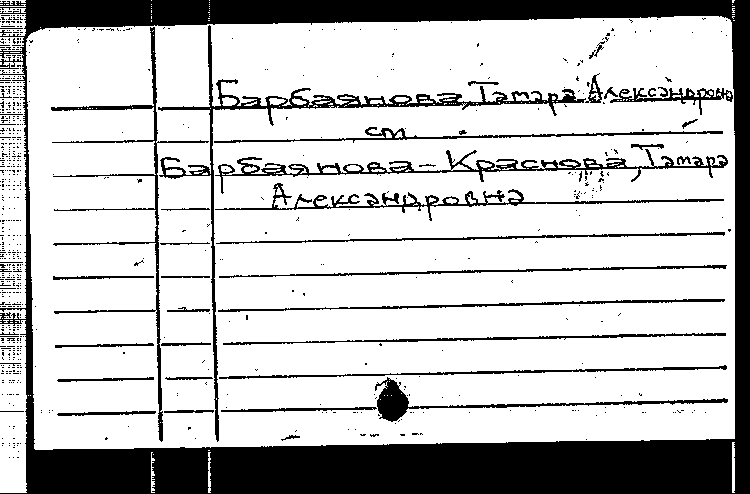 Барбаянова, Тамара Александровна
см.
Барбаянова-Краснова, Тамара
Александровна